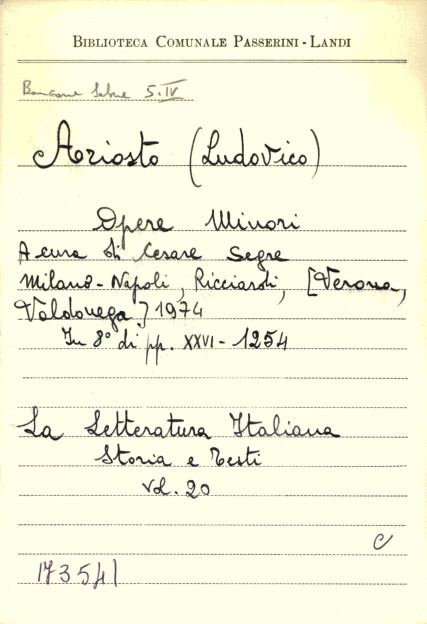 BIBLIOTECA COMUNALE PASSERINI - LANDI
Bancone Sabre 5.IV
Ariosto (Ludovico)
Opere Minori
A cura di Cesare Segre
Milano - Napoli, Ricciardi, [Verona,
Valdonega] 1974
In 8° di pp. XXVI - 1254
La Letteratura Italiana
Storia e Testi
Vol. 20
C
173541